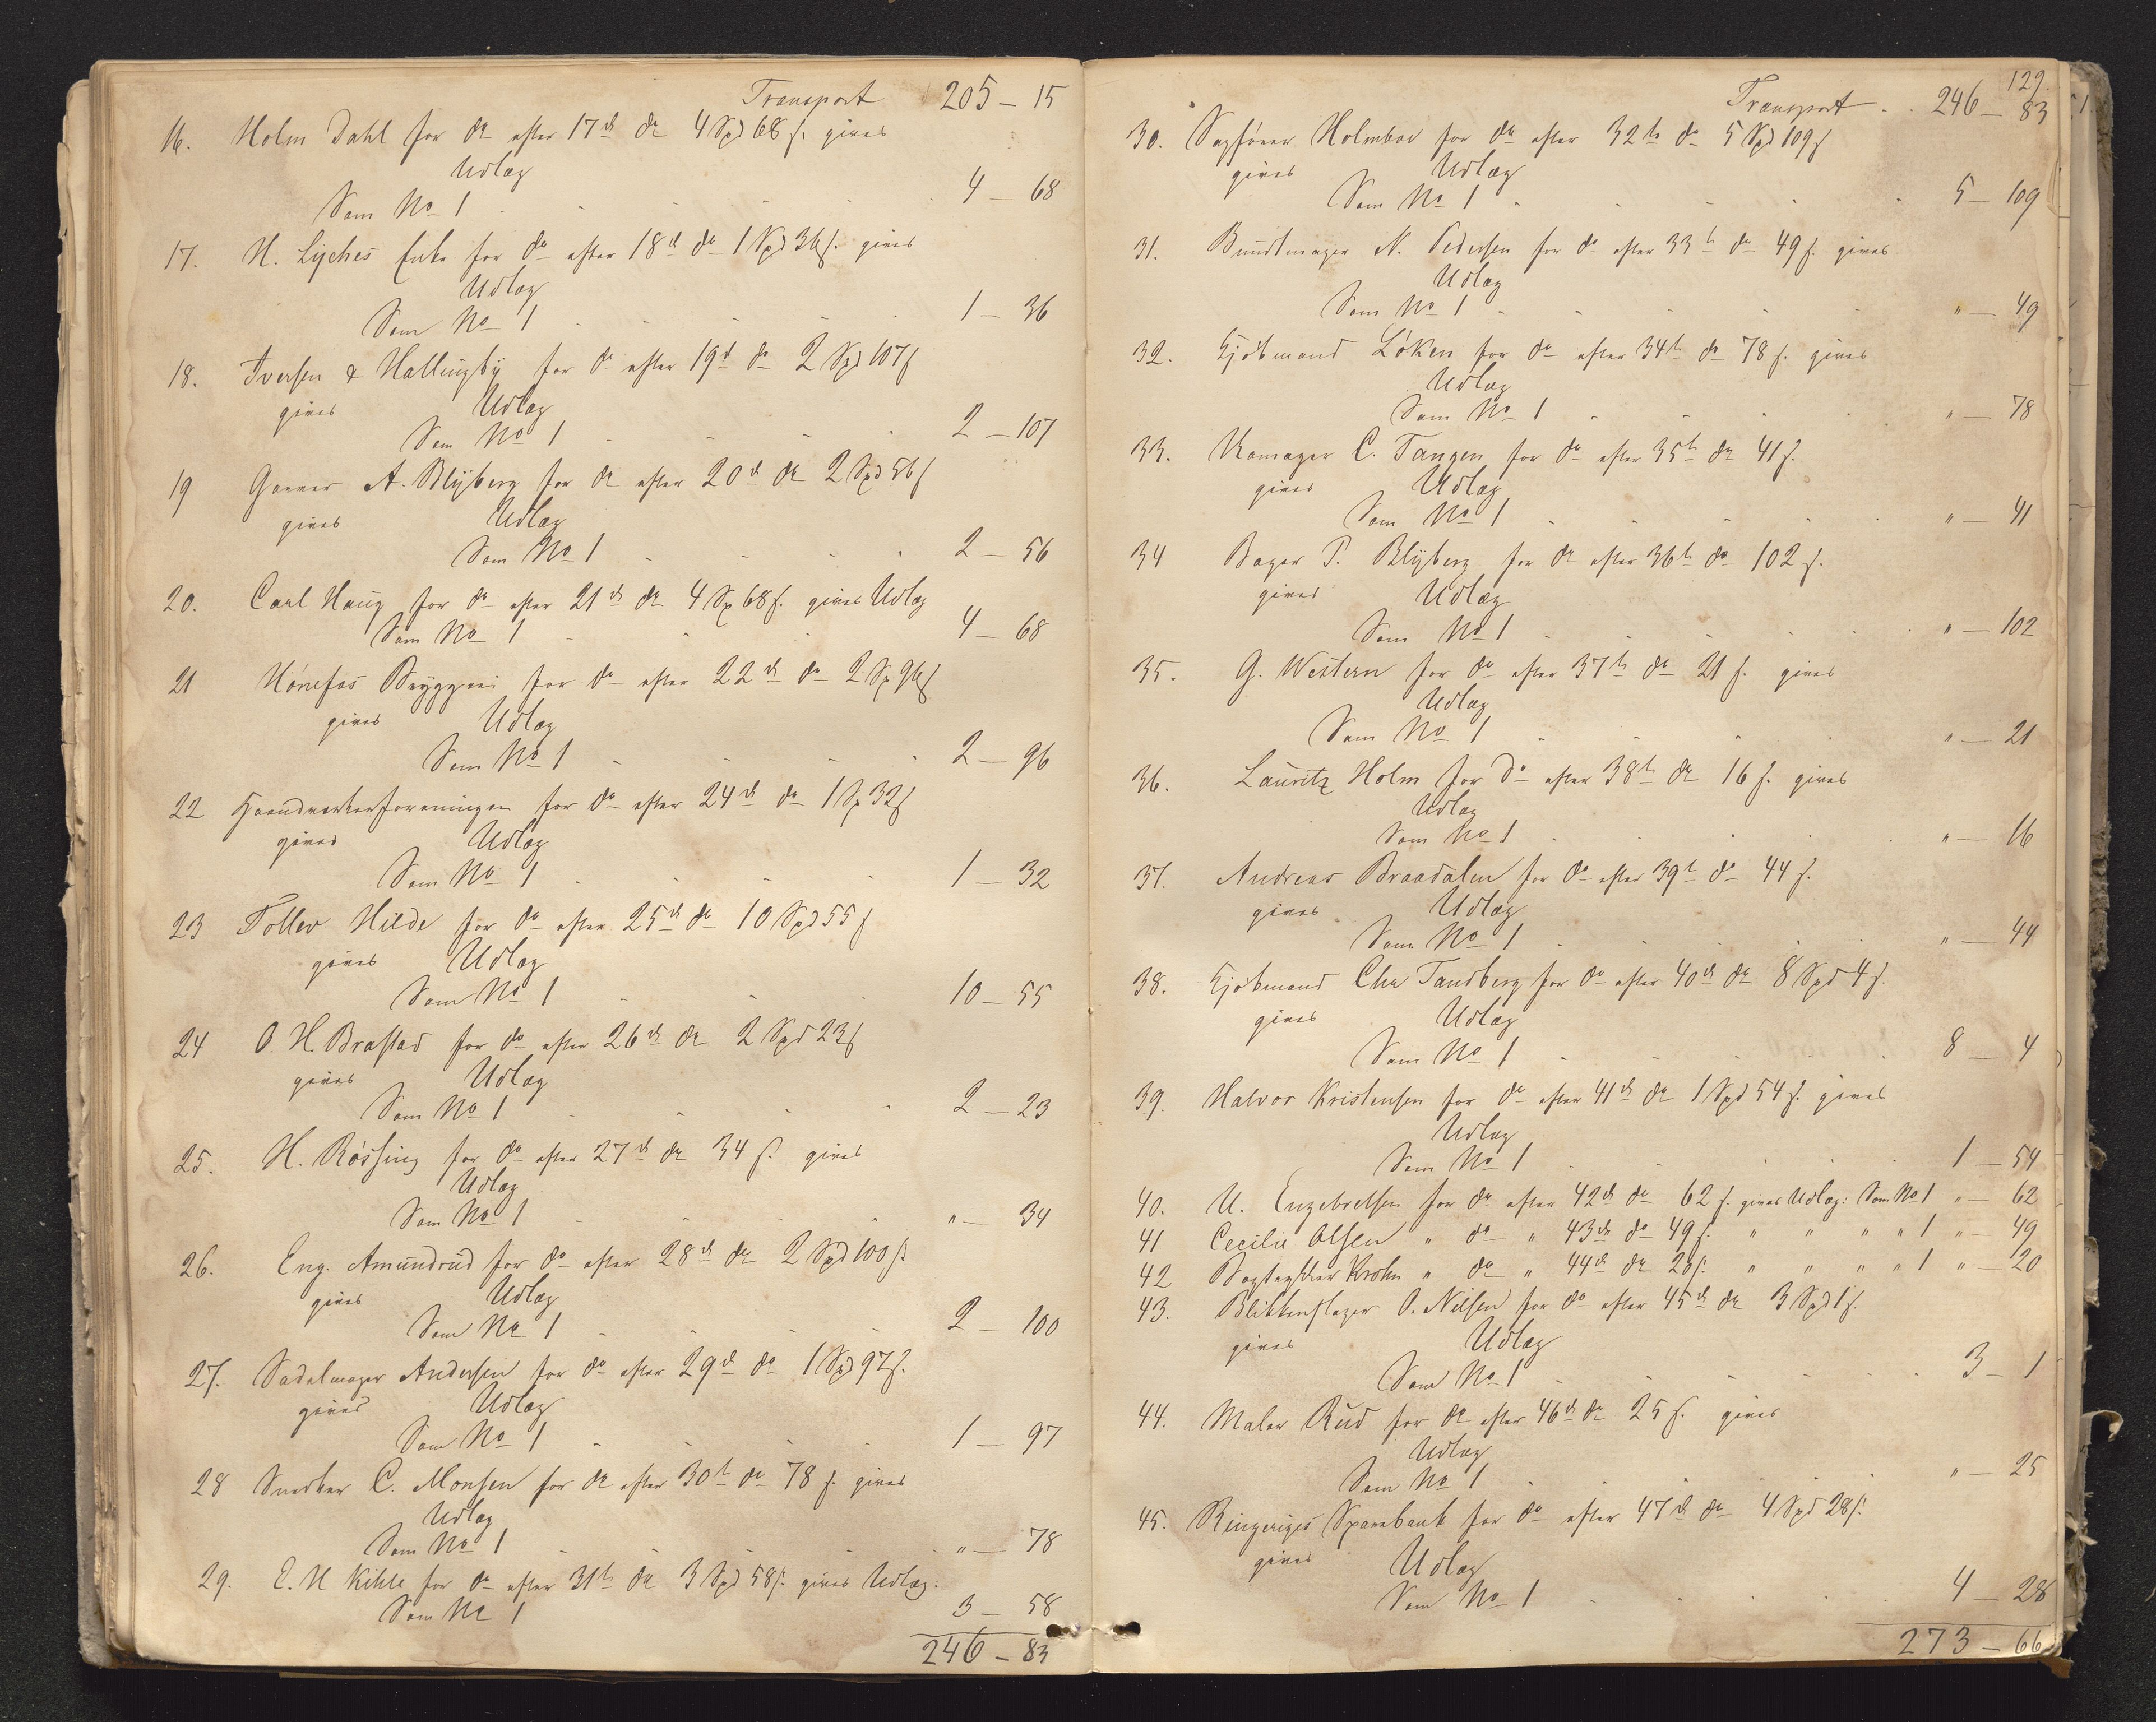 Transport 205 — 15
16. Holm Dahl for do efter 17de do 4 Spd 68 s. gives
Udlæg
Som No 1 4 — 68
17. H. Lyches Enke for do efter 18de do 1 Spd 36 s. gives
Udlæg
Som No 1 1 — 36
18. Iversen & Hallingby for do efter 19de do 2 Spd 107 s
gives Udlæg
Som No 1 2 — 107
19 Garver A. Blyberg for do efter 20de do 2 Spd 56 s
gives Udlæg
Som No 1 2 — 56
20. Carl Haug for do efter 21de do 4 Sp 68 s. gives Udlæg
Som No 1 4 — 68
21 Hönefos Bryggeri for do efter 22de do 2 Sp 96 s
gives Udlæg
Som No 1 2 — 96
22 Haandverkerforeningen for do efter 24de do 1 Sp 32 s
gives Udlæg
Som No 1 1 — 32
23 Tollev Hilde for do efter 25de do 10 Spd 55 s
gives Udlæg
Som No 1 10 — 55
24 O. H. Brastad for do efter 26de do 2 Spd 23 s
gives Udlæg
Som No 1 2 — 23
25. H. Rössing for do efter 27de do 34 s. gives
Udlæg
Som No 1 " — 34
26. Eng. Amundrud for do efter 28de do 2 Spd 100 s.
gives Udlæg
Som No 1 2 — 100
27. Sadelmager Andersen for do efter 29de do 1 Spd 97 s.
gives Udlæg
Som No 1 1 — 97
28 Snedker C. Monsen for do efter 30te do 78 s. gives
Udlæg
Som No 1 " — 78
29. E. H Kihle for do efter 31te do 3 Spd 58 s. gives Udlæg:
Som No 1 3 — 58
246 — 83
129.
Transport 246 — 83
30. Sagförer Holmboe for do efter 32te do 5 Spd 109 s
gives Udlæg
Som No 1 5 — 109
31. Bundtmager N. Pedersen for do efter 33te do 49 s. gives
Udlæg
Som No 1 " — 49
32. Kjöbmand Löken for do efter 34te do 78 s. gives
Udlæg
Som No 1 " — 78
33. C. Tangen for do efter 35te do 41 s.
gives Udlæg
Som No 1 " — 41
34 Bager P. Blyberg for do efter 36te do 102 s.
gives Udlæg
Som No 1 " — 102
35. G. Western for do efter 37te do 21 s. gives
Udlæg
Som No 1 " — 21
36. Lauritz Holm for do efter 38te do 16 s. gives
Udlæg
Som No 1 " — 16
37. Andreas Braadalen for do efter 39te do 44 s.
gives Udlæg
Som No 1 " — 44
38. Kjöbmand Chr Tandberg for do efter 40de do 8 Spd 4 s.
gives Udlæg
Som No 1 8 — 4
39. Halvor Kristensen for do efter 41de do 1 Spd 54 s. gives
Udlæg
Som No 1 1 — 54
40. U. Engebretsen for do efter 42de do 62 s. gives Udlæg: Som No 1 " — 62
41 Cecilie Olsen " do " 43de do 49 s. " " " " 1 " — 49
42 Bogtrykker Krohn " do " 44de do 20 s. " " " " 1 " — 20
43. Blikkenslager O. Nilsen for do efter 45de do 3 Spd 1 s.
gives Udlæg
Som No 1 3 — 1
44. Maler Rud for do efter 46de do 25 s. gives
Udlæg
Som No 1 " — 25
45. Ringeriges Sparebank for do efter 47de do 4 Spd 28 s.
gives Udlæg
Som No 1 4 — 28
273 — 66